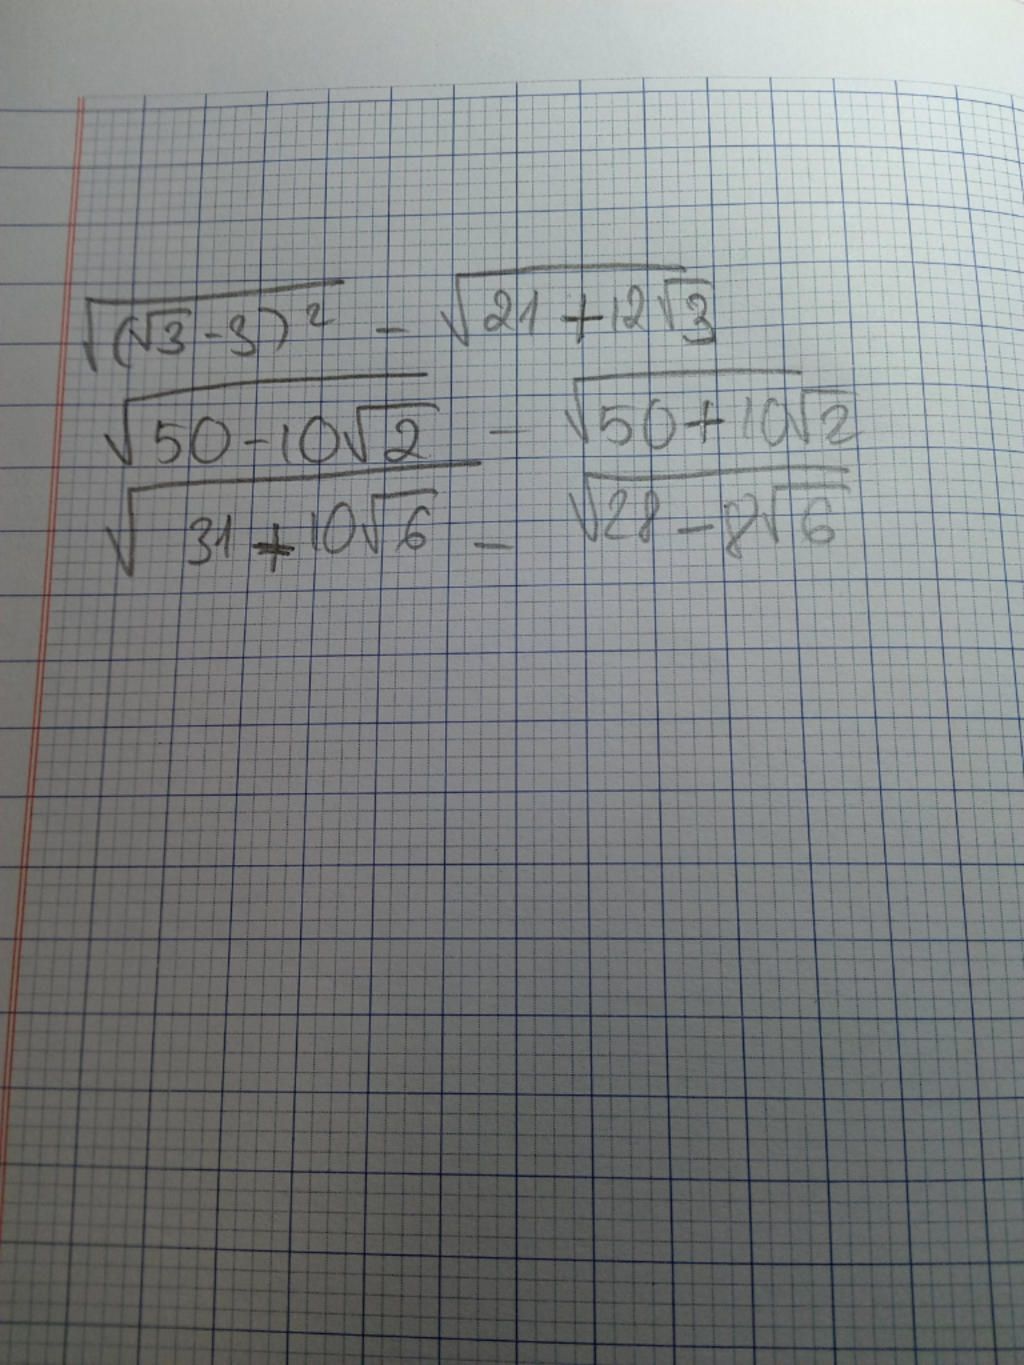 √((√3-3)²) - √(21+12√3)
√(50-10√2) - √(50+10√2)
√(31+10√6) - √(28-8√6)